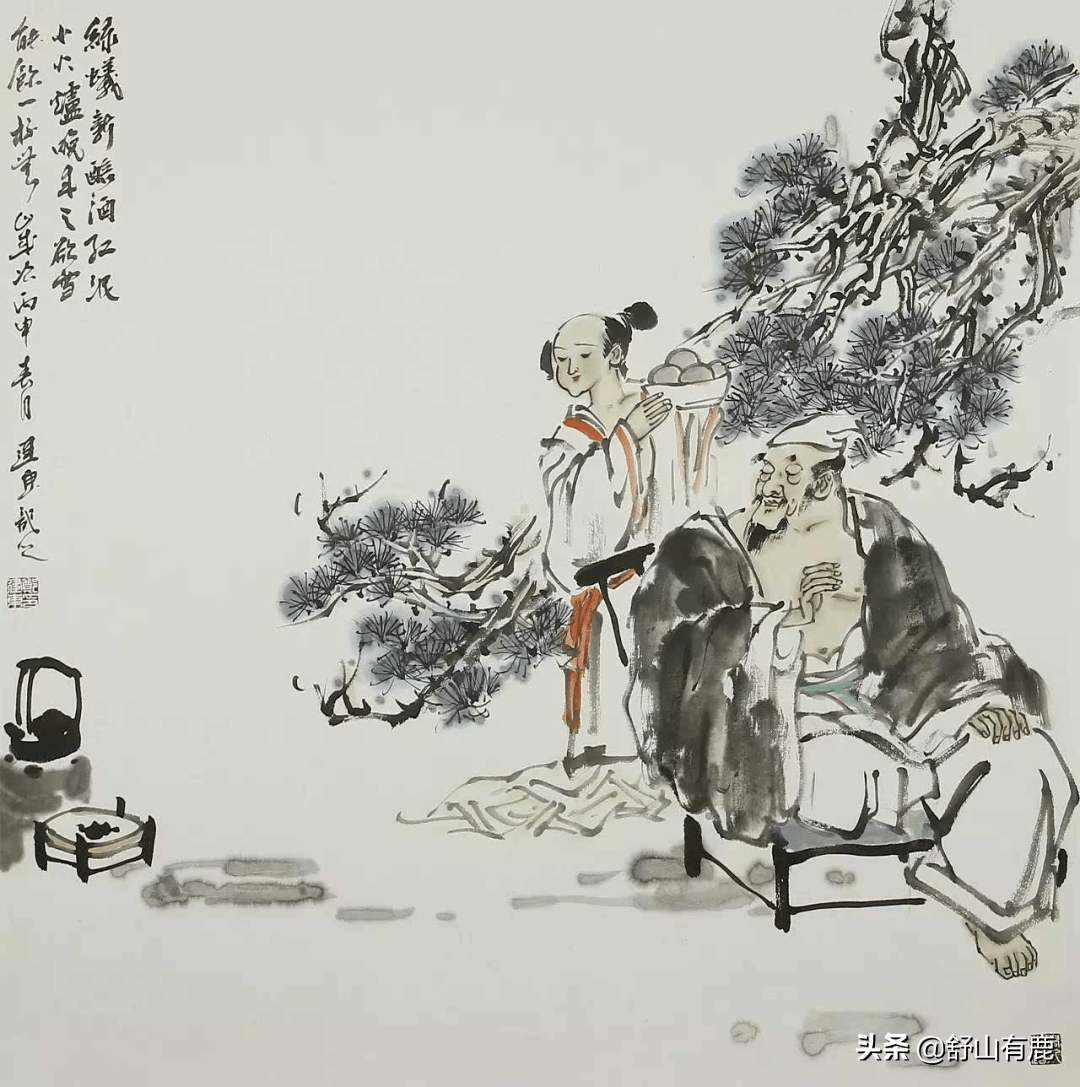 綠蟻新醅酒紅泥
小火爐晚來天欲雪
能飲一杯無 歲次丙申春月 記之
头条 @舒山有鹿